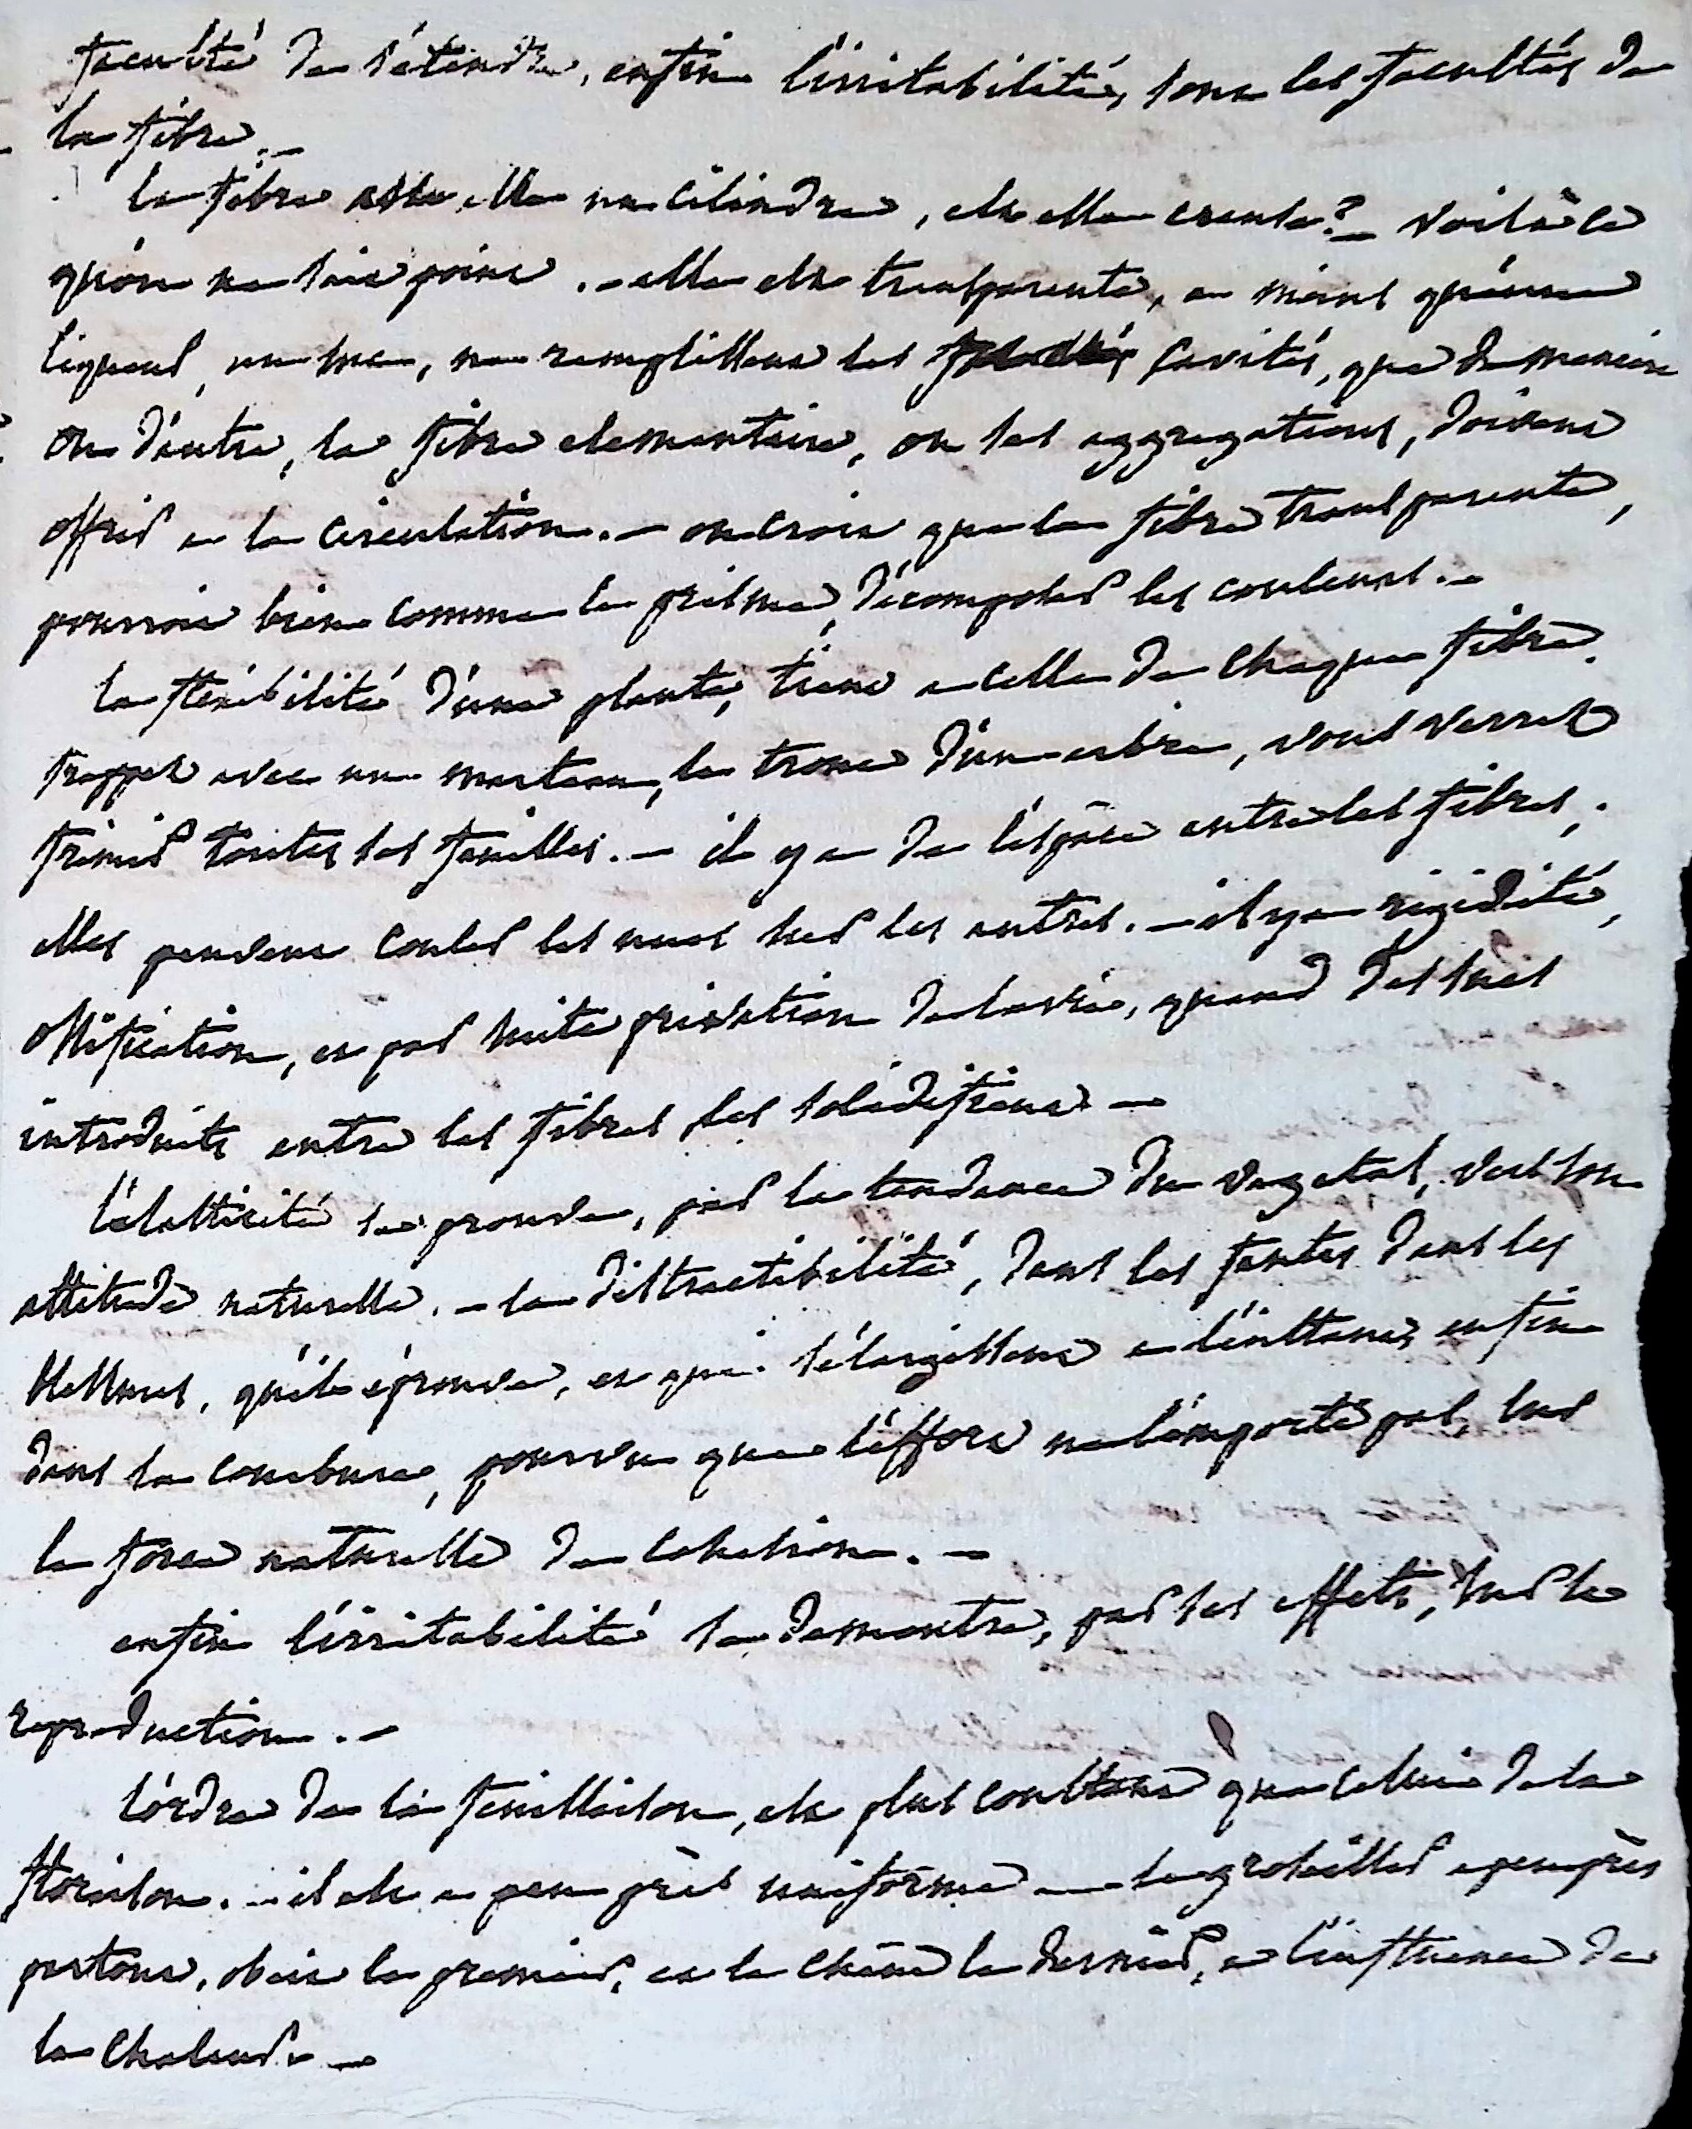 faculté de s'étendre, enfin l'irritabilité, sont les facultés de
la fibre. —
la fibre est elle un cilindre, est elle creuse? — voilà ce
qu'on ne sait point. — elle est transparente, a moins qu'une
liqueur, un suc, ne remplissent les cavités, que de maniere
ou d'autre, la fibre elementaire, ou ses aggregations, doivent
offrir a la circulation. — on croit que la fibre transparente,
pourroit bien comme le prisme, décomposer les couleurs. —
la flexibilité d'une plante, tient a celle de chaque fibre.
frappez avec un marteau, le tronc d'un arbre, vous verrez
frémir toutes ses feuilles. — il y a de l'espace entre les fibres,
elles peuvent couler les unes sur les autres. — il y a rigidité,
ossification, et par suite privation de la vie, quand des sucs
introduits entre les fibres les solidifient —
l'élasticité se prouve, par la tendance du vegetal, vers son
attitude naturelle. — la distractibilité, dans les fentes dans les
blessures, qu'il éprouve, et qui s'élargissent a l'instant, enfin
dans la courbure, pourvu que l'effort ne l'emporte pas, sur
la force naturelle de cohesion. —
enfin l'irritabilité se demontre, par ses effets, sur la
reproduction. —
l'ordre de la feuillaison, est plus constant que celui de la
floraison. — il est a peu près uniforme — le groseiller a peu près
partout, obeit le premier, et le chêne le dernier, a l'influence de
la chaleur. —